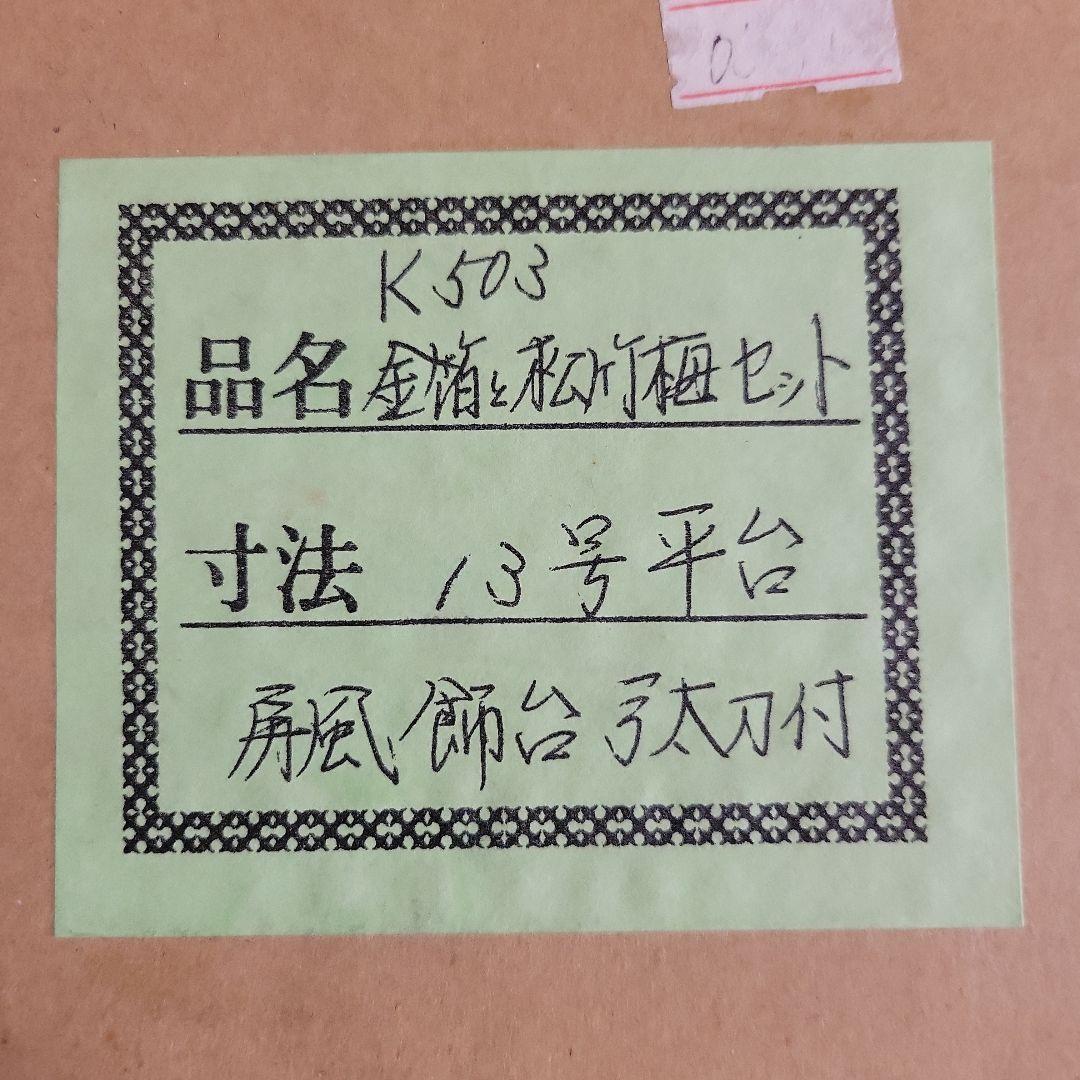 K503
品名 金箔と松竹梅セット
寸法 13号平台
屏風 飾台 弓太刀付